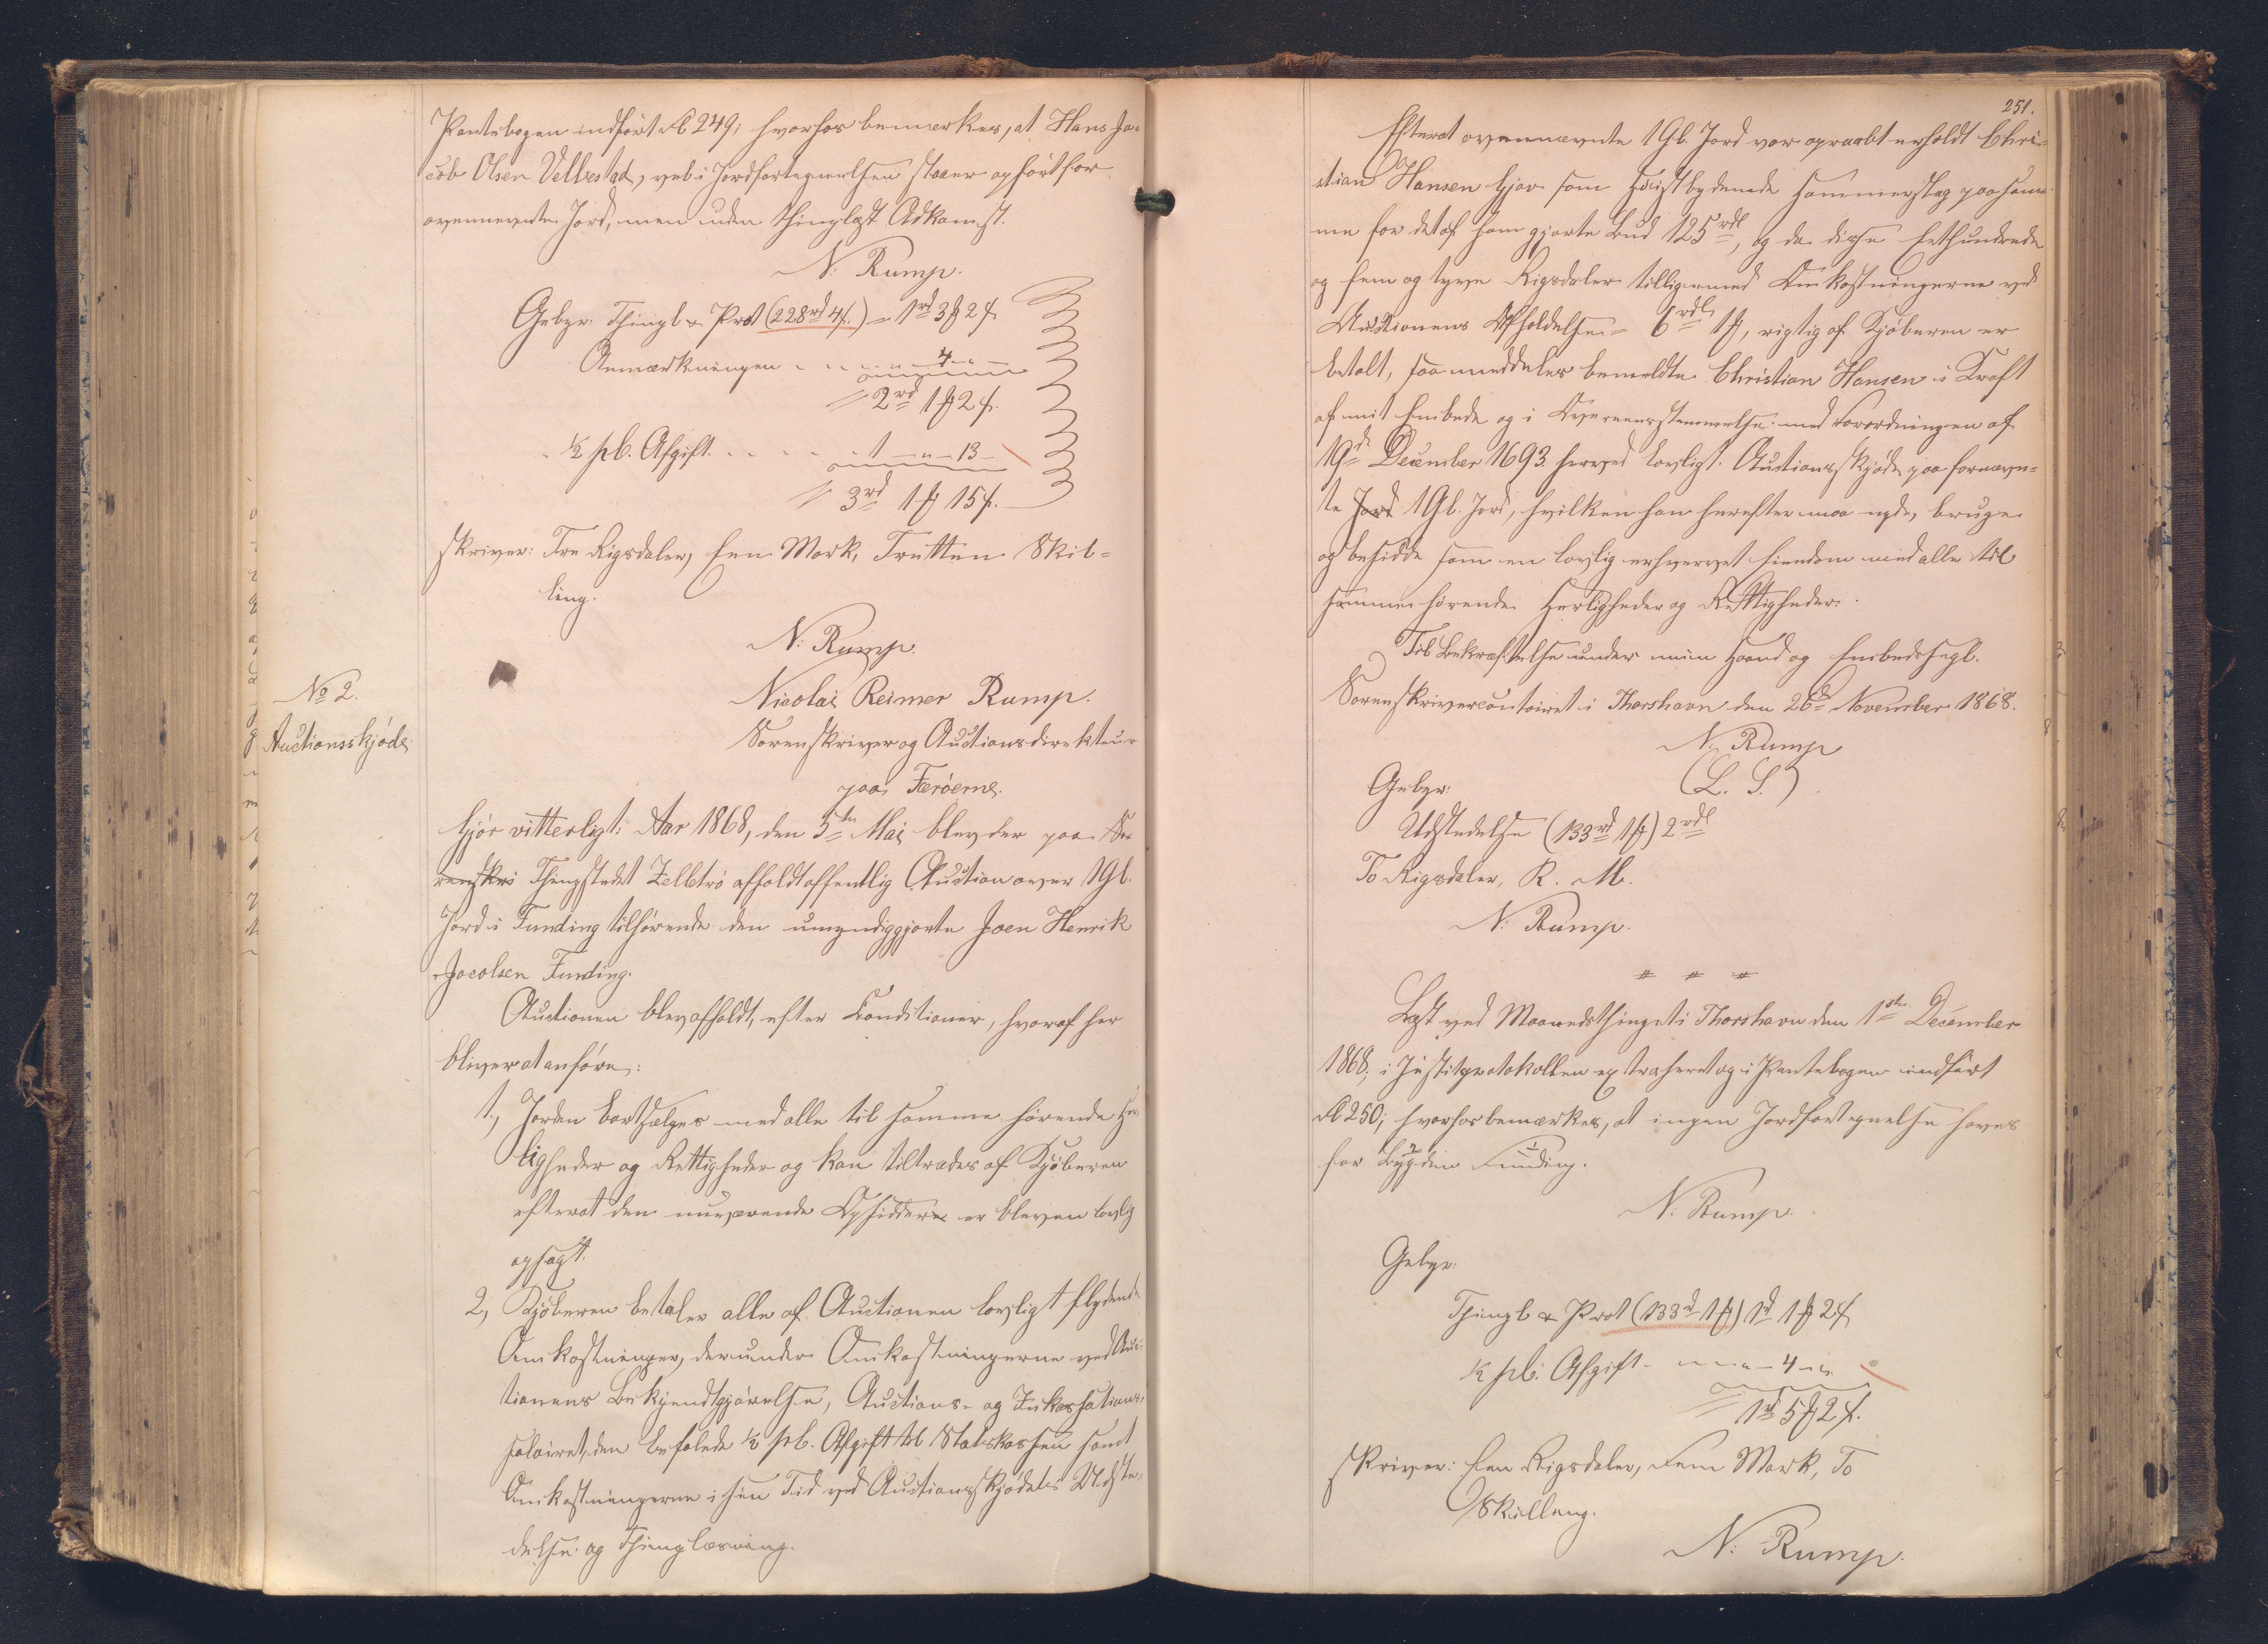 Pantebogen indført No 249; hvorhos bemærkes, at Hans Ja-
cob Olsen Velbestad, ved i Jordfortegnelsen staaer opført for
ovennævnte Jord, men uden thinglæst Adkomst.
N: Rump.
Gebyr: Thingl & Prot (228rd 4ß.) = 1rd 3 ℔ 2 ß
Anmærkningen - - - - „ - 4 - „ -
= 2rd 1 ℔ 2 ß.
½ pC. Afgift. - - - - 1 - „ - 13 -
= 3rd 1 ℔ 15 ß.
skriver: Tre Rigsdaler, Een Mark, Fretten Skil-
ling.
N: Rump.
No 2.
Auctionsskjøde.
Nicolai Reimer Rump.
Sorenskriver og Auctionsdirekteur
paa Færøerne.
Gjør vitterligt: Aar 1868, den 5te Mai blev der paa So-
renskri Thingstedet Zelletrø afholdt offentlig Auction over 1 Gl.
Jord i Funding tilhørende den umyndiggjorte Joen Henrik
Jacobsen Funding.
Auctionen blev afholdt, efter Conditioner, hvoraf her
bliver at anføre:
1, Jorden bortsælges med alle til samme hørende Her-
ligheder og Rettigheder og kan tiltrædes af Kjøberen
efterat den nuværende Opsidder er bleven lovlig
opsagt.
2, Kjøberen betaler alle af Auctionen lovligt flydende
Omkostninger, derunder Omkostningerne ved Auc-
tionens Bekjendtgjørelse, Auctions- og Inkassations-
salairet, den befalede ½ pC. Afgift til Statskassen samt
Omkostningerne i sin Tid ved Auctionsskjødets Udste-
delse og Thinglæsning.
251.
Efterat ovennævnte 1 Gl. Jord var opraabt erholdt Chri-
stian Hansen Gjov som høistbydende Hammerslag paa sam-
me for det af ham gjorte Bud 125rdl, og da disse Eethundrede
og fem og tyve Rigsdaler tilligemed Omkostningerne ved
Auctionens Afholdelse = 6rdl 1 ℔, rigtig af Kjøberen er
betalt, saa meddeles bemeldte Christian Hansen i Kraft
af mit Embede og i Overeensstemmelse med Forordningen af
19de December 1693 herved lovligt Auctionsskjøde paa fornævn-
te Jord 1 Gl. Jord, hvilken han herefter maa nyde, bruge
og besidde som en lovlig erhvervet Eiendom med alle til
samme hørende Herligheder og Rettigheder.
Til Bekræftelse under min Haand og Embedssegl.
Sorenskrivercontoiret i Thorshavn den 26de November 1868.
N. Rump
(L. S.)
Gebyr:
Udstedelse (133rd 1 ℔) 2rdl
To Rigsdaler, R. M.
N: Rump.
# # #
Læst ved Maanedsthinget i Thorshavn den 1ste December
1868, i Justitsprotokollen extraheret og i Pantebogen indført
No 250; hvorhos bemærkes, at ingen Jordfortegnelse haves
for Bygden Funding.
N. Rump.
Gebyr:
Thingl & Prot (133rd 1 ℔) 1rd 1 ℔ 2 ß
½ pC: Afgift - - - „ - 4 - „
= 1rd 5 ℔ 2 ß.
skriver: Een Rigsdaler, Fem Mark, To
Skilling.
N: Rump.